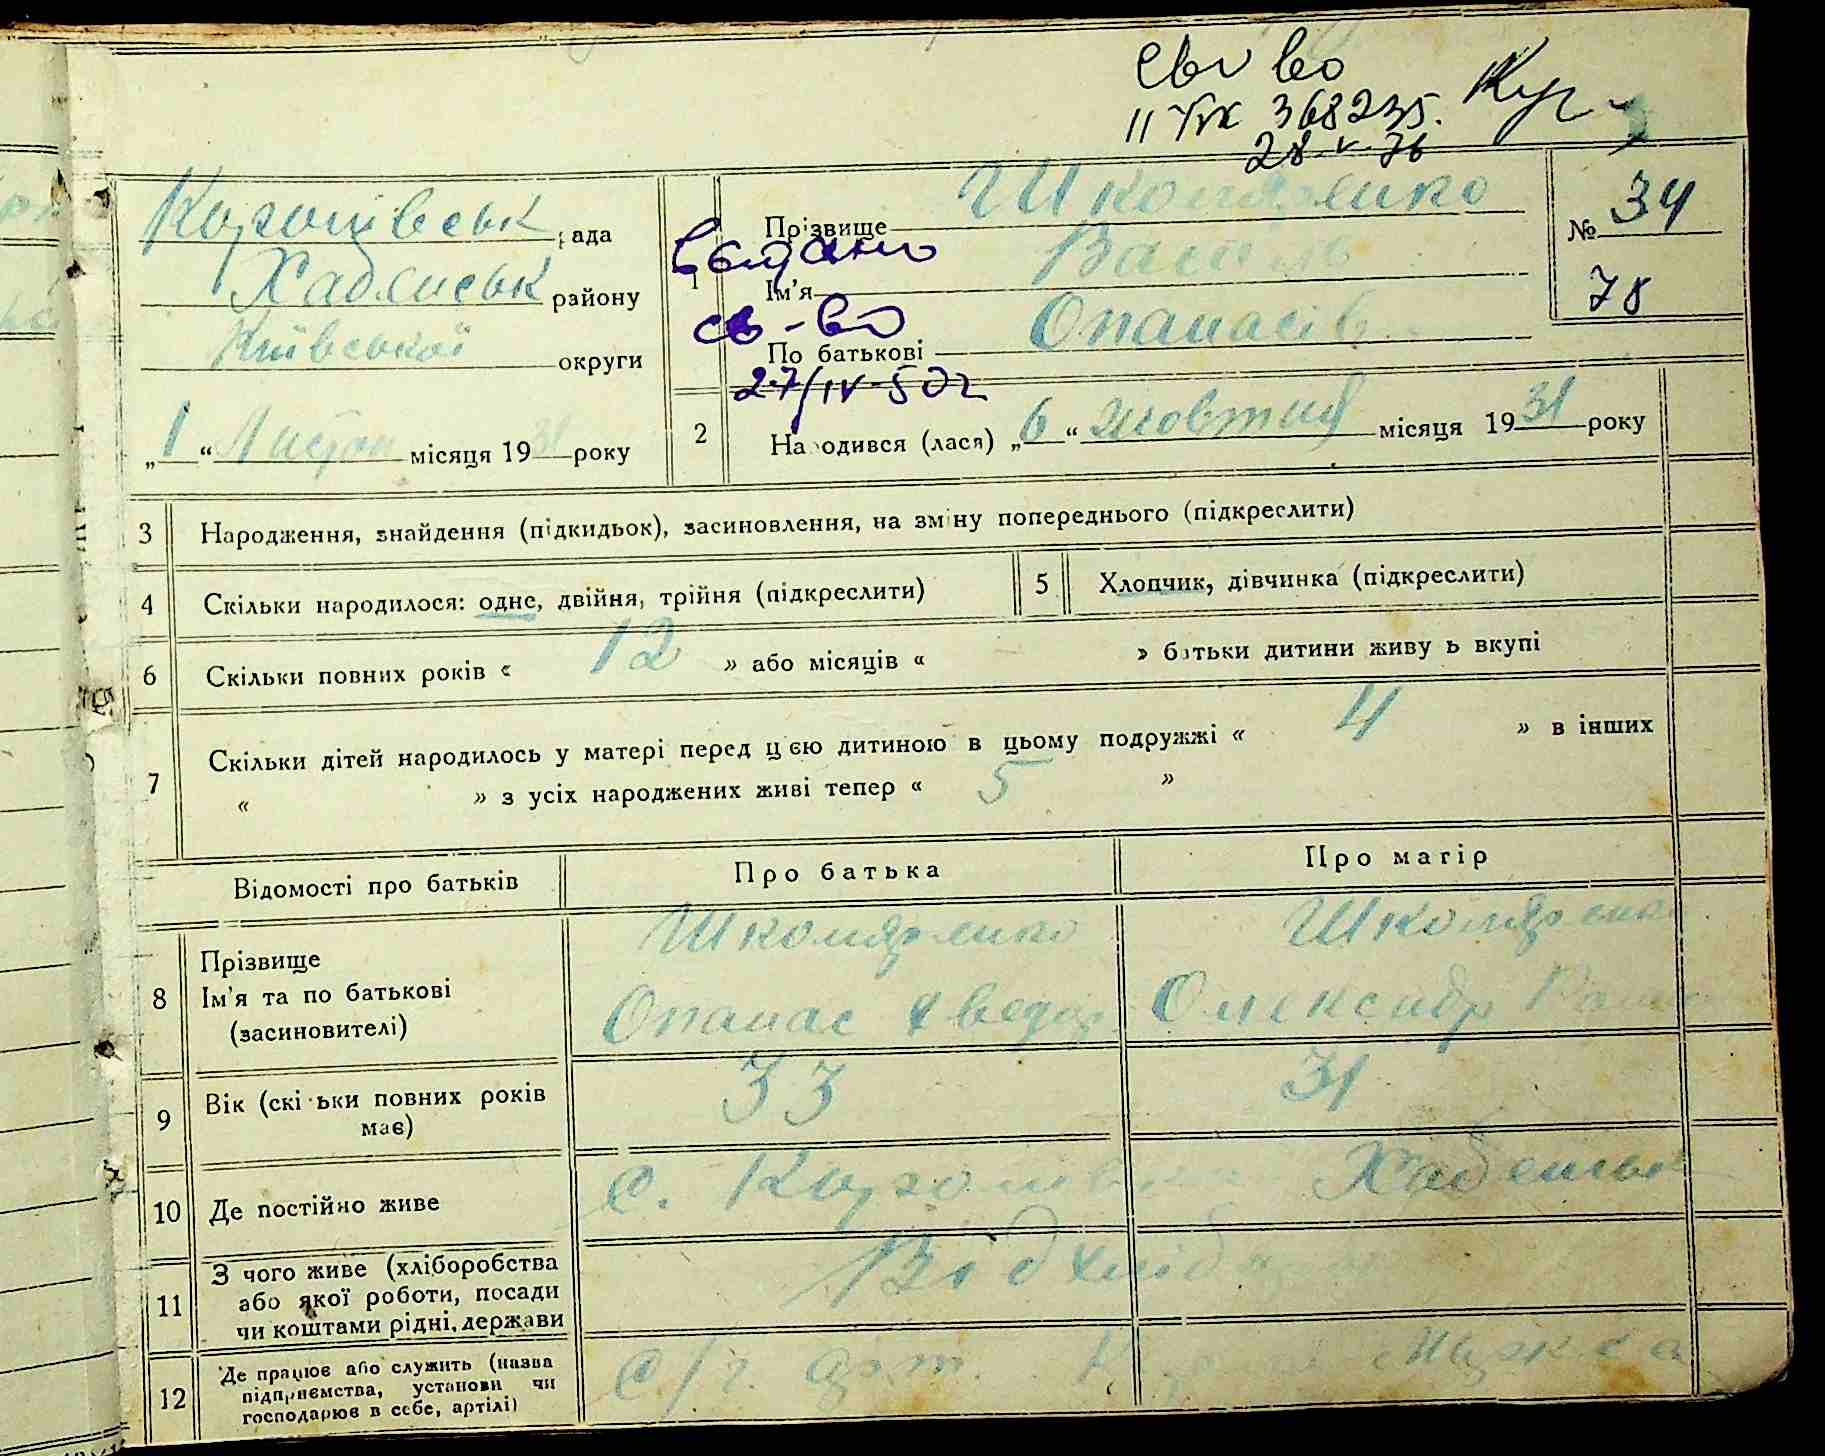 Св во
II УК 368235.
28.V.76
рада
Хабенськ району
Київської округи
„1“ Листоп місяця 1931 року
1
Прізвище Школяренко
Ім'я Василь
По батькові Опанасів
Видано
св-во
27/IV-50г
№ 34
78
2 Народився (лася) „6“ жовтня місяця 1931 року
3 Народження, знайдення (підкидьок), засиновлення, на зміну попереднього (підкреслити)
4 Скільки народилося: одне, двійня, трійня (підкреслити)
5 Хлопчик, дівчинка (підкреслити)
6 Скільки повних років « 12 » або місяців « » батьки дитини живуть вкупі
7 Скільки дітей народилось у матері перед цією дитиною в цьому подружжі « 4 » в інших
« » з усіх народжених живі тепер « 5 »
Відомості про батьків Про батька Про матір
8 Прізвище Школяренко Школяренк
Ім'я та по батькові Опанас Хведор Олександр
(засиновителі)
9 Вік (скільки повних років 33 31
має)
10 Де постійно живе с. Хабенськ
11 З чого живе (хліборобства
або якої роботи, посади
чи коштами рідні, держави
12 Де працює або служить (назва с/г арт.
підприємства, установи чи
господарює в себе, артілі)